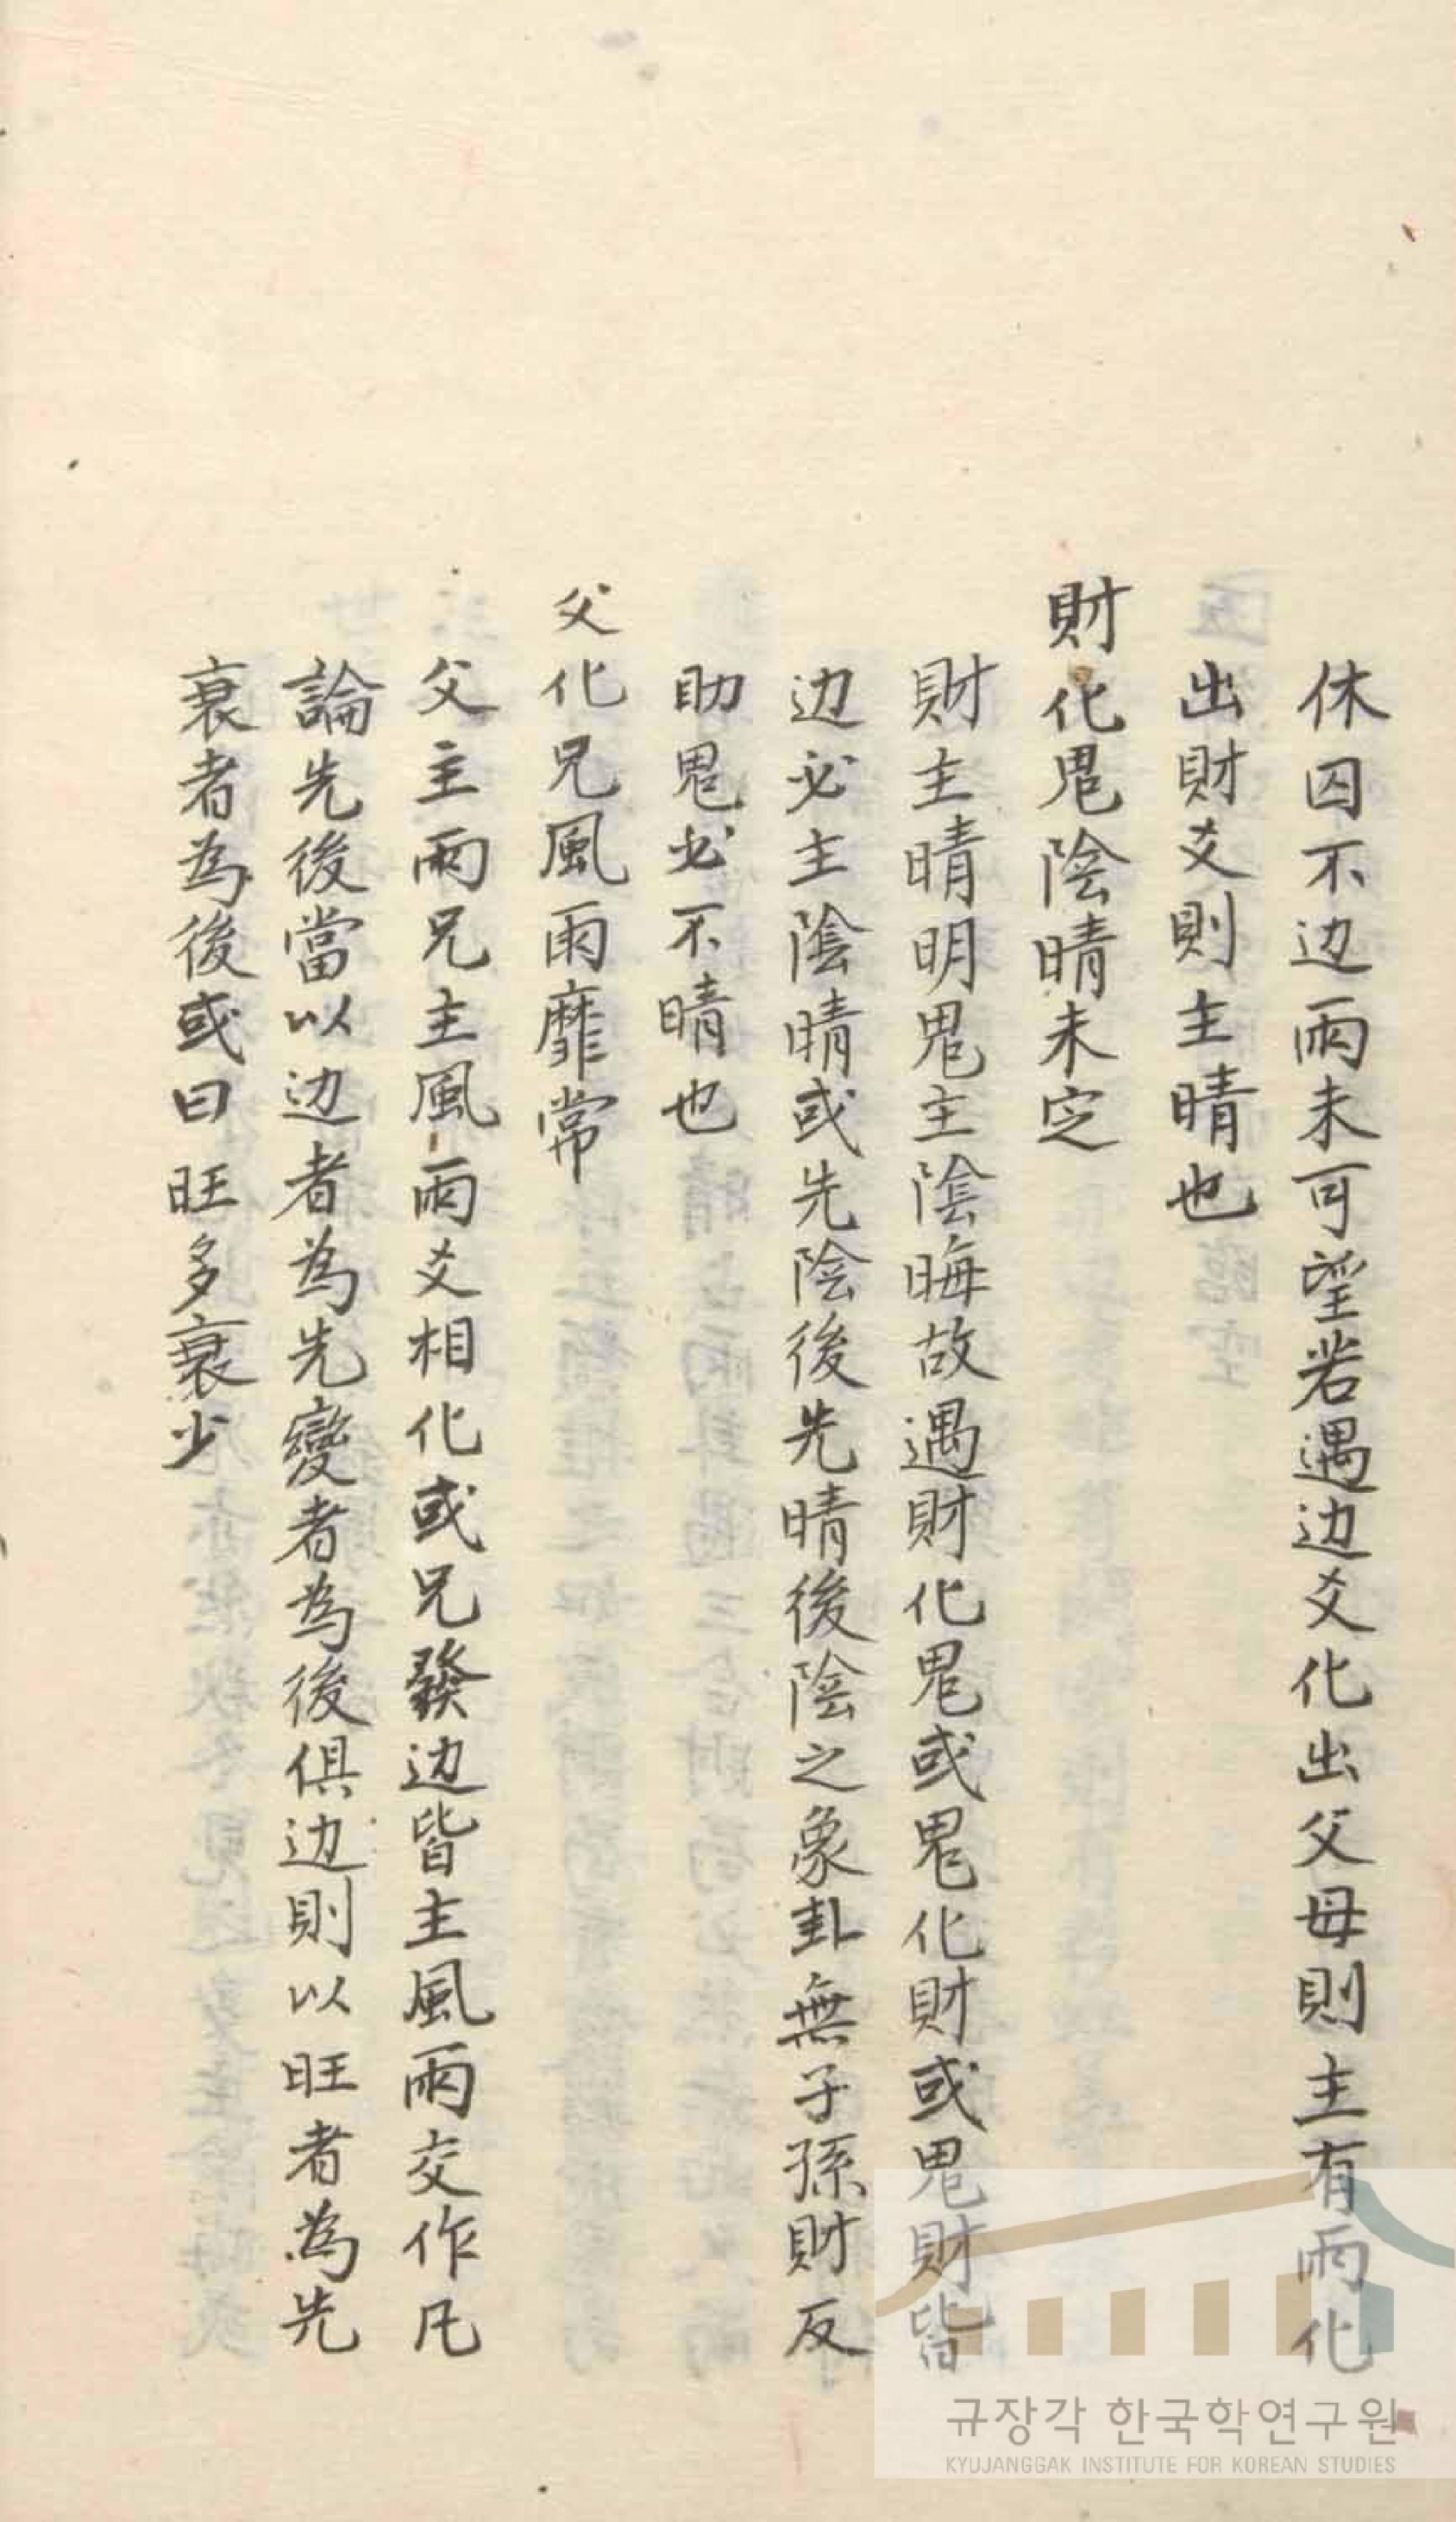 休囚不边雨未可望若遇边爻化出父母則主有雨化
出財爻則主晴也
財化鬼陰晴未定
財主晴明鬼主陰晦故遇財化鬼或鬼化財或鬼財皆
边必主陰晴或先陰後先晴後陰之象卦無子孫財反
助鬼必不晴也
父化兄風雨靡常
父主雨兄主風雨爻相化或兄發边皆主風雨交作凡
論先後當以边者為先變者為後俱边則以旺者為先
衰者為後或曰旺多衰少
규장각 한국학연구원
KYUJANGGAK INSTITUTE FOR KOREAN STUDIES